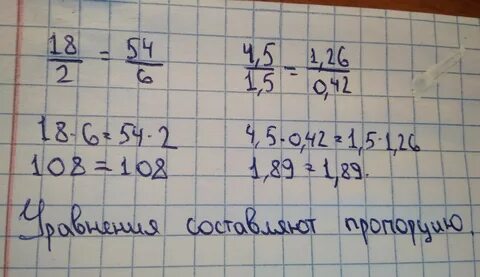 18/2 = 54/6
4,5/1,5 = 1,26/0,42
18·6=54·2
4,5·0,42=1,5·1,26
108=108
1,89=1,89.
Уравнения составляют пропорцию.